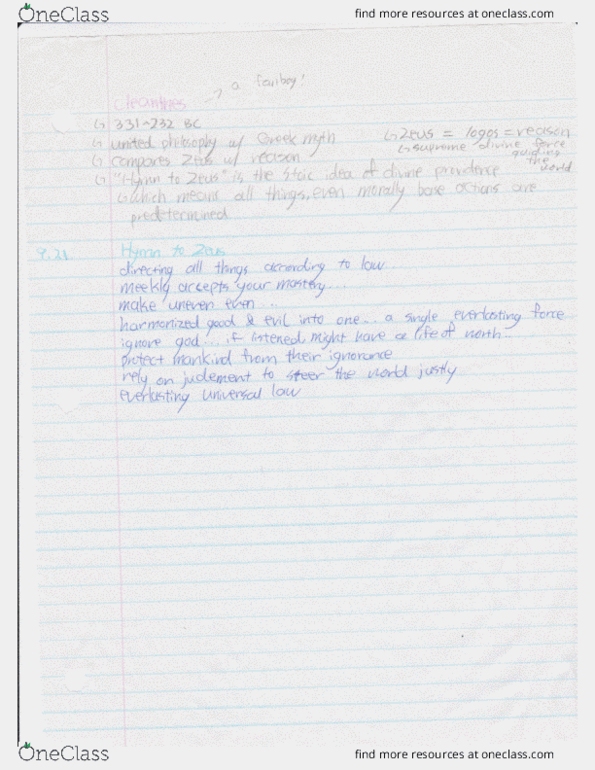 OneClass find more resources at oneclass.com
Cleanthes → a fanboy!
↳ 331-232 BC
↳ united philosophy w/ Greek myth ↳ Zeus = logos = reason
↳ compares Zeus w/ reason ↳ supreme divine force guiding the world
↳ "Hymn to Zeus" is the Stoic idea of divine providence
↳ which means all things, even morally base actions are
predetermined
9.21 Hymn to Zeus
directing all things according to law...
meekly accepts your mastery...
make uneven even...
harmonized good & evil into one... a single everlasting force
ignore god... if listened, might have a life of worth...
protect mankind from their ignorance
rely on judement to steer the world justly
everlasting universal law
OneClass find more resources at oneclass.com